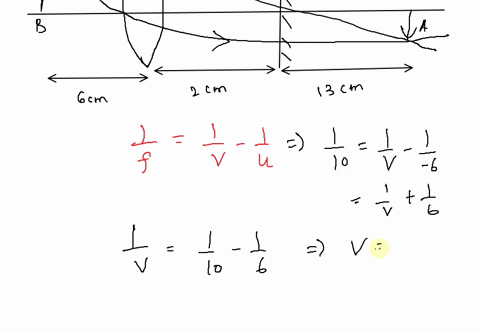 B A
6cm 2cm 13cm
1/f = 1/v - 1/u => 1/10 = 1/v - 1/-6
= 1/v + 1/6
1/v = 1/10 - 1/6 => v =